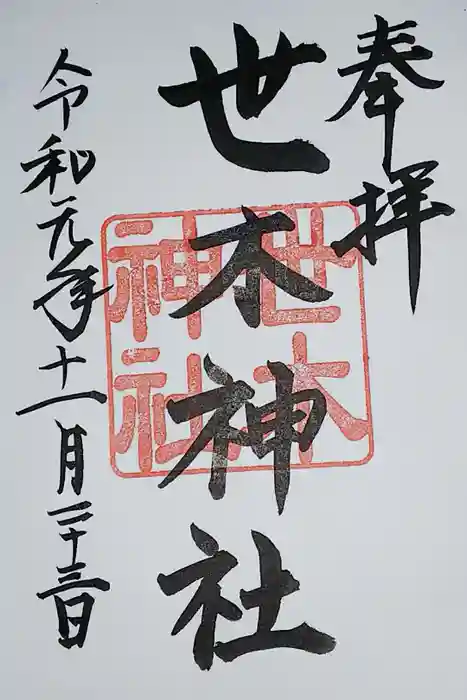 奉拝
世木神社
世木神社
令和元年十一月二十三日